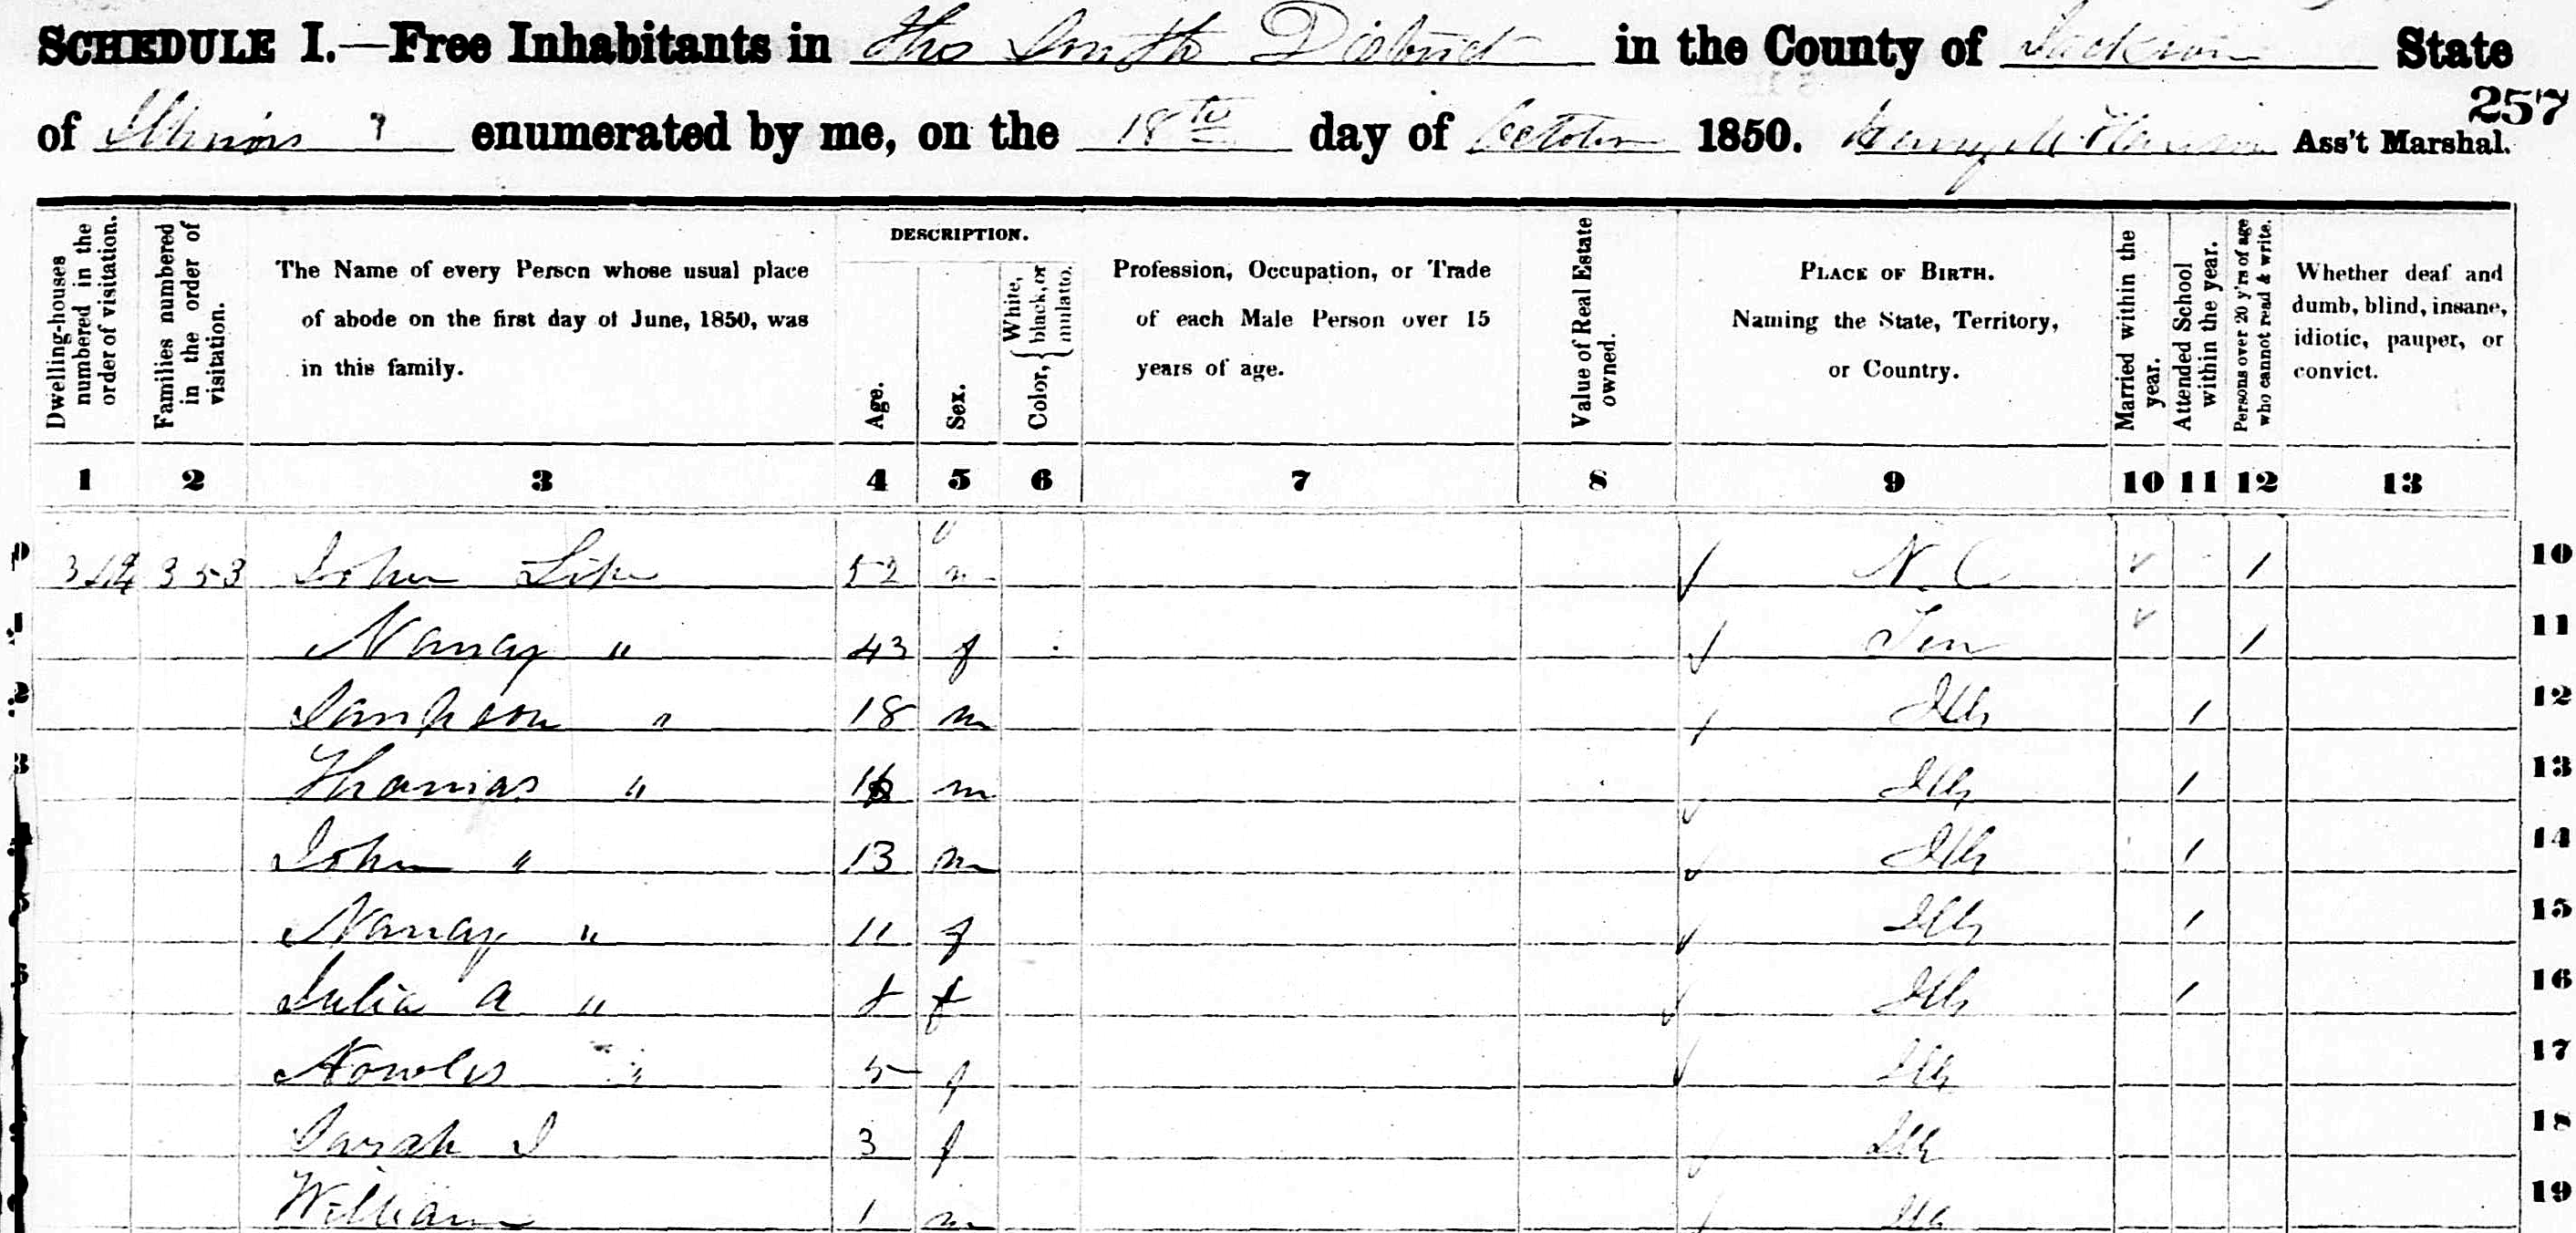 SCHEDULE I.—Free Inhabitants in The South District in the County of Jackson State
of Illinois enumerated by me, on the 18th day of October 1850. Ass't Marshal.
257
Dwelling-houses numbered in the order of visitation.
Families numbered in the order of visitation.
The Name of every Person whose usual place of abode on the first day of June, 1850, was in this family.
DESCRIPTION.
Age.
Sex.
Color, { White, black, or mulatto.
Profession, Occupation, or Trade of each Male Person over 15 years of age.
Value of Real Estate owned.
PLACE OF BIRTH. Naming the State, Territory, or Country.
Married within the year.
Attended School within the year.
Persons over 20 y'rs of age who cannot read & write.
Whether deaf and dumb, blind, insane, idiotic, pauper, or convict.
1 2 3 4 5 6 7 8 9 10 11 12 13
353 John 52 m N. C 1 10
Nancy " 43 f Ten 1 11
Sampson " 18 m Ills 1 12
Thomas " 16 m Ills 1 13
John " 13 m Ills 1 14
Nancy " 11 f Ills 1 15
Julia A " 8 f Ills 1 16
" 5 f Ills 17
Sarah J 3 f Ills 18
William 1 m Ills 19